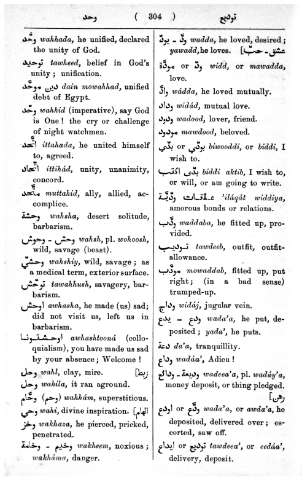 وحد ( 304 ) توديع
وحّد wahhada, he unified, declared
the unity of God.
توحيد tawheed, belief in God's
unity; unification.
دين موحّد dain mowahhad, unified
debt of Egypt.
وحّد wahhid (imperative), say God
is One! the cry or challenge
of night watchmen.
اتّحد ittahada, he united himself
to, agreed.
اتّحاد ittihád, unity, unanimity,
concord.
متّحد muttahid, ally, allied, ac-
complice.
وحشة wahsha, desert solitude,
barbarism.
وحش - وحوش wahsh, pl. wohoosh,
wild, savage (beast).
وحشي wahshiy, wild, savage; as
a medical term, exterior surface.
توحّش tawahhush, savagery, bar-
barism.
اوحش awhasha, he made (us) sad;
did not visit us, left us in
barbarism.
اوحشتونا awhashtoona (collo-
quialism), you have made us sad
by your absence; Welcome!
وحل wahl, clay, mire.
وحل wahila, it ran aground.
وحّام wahhám, superstitious.
وحي wahi, divine inspiration.
وخز wakhaza, he pierced, pricked,
penetrated.
وخيم - وخامة wakheem, noxious;
wakháma, danger.
ودّ - يودّ wadda, he loved, desired;
yawadd, he loves.
ودّ or مودّة widd, or mawadda,
love.
وادّ wádda, he loved mutually.
وداد widád, mutual love.
ودود wadood, lover, friend.
مودود mawdood, beloved.
بدّي or بودّي biwoddi, or biddi, I
wish to.
بدّي اكتب biddi aktib, I wish to,
or will, or am going to write.
علاقات ودّيّة 'iláqát widdiya,
amorous bonds or relations.
ودّب waddaba, he fitted up, pro-
vided.
توديب tawdeeb, outfit, outfit-
allowance.
مودّب mowaddab, fitted up, put
right; (in a bad sense)
trumped-up.
وداج widáj, jugular vein.
ودع - يدع wada'a, he put, de-
posited; yada', he puts.
دعة da'a, tranquillity.
وداع wadáa', Adieu!
وديعة - ودائع wadeea'a, pl. wadáy'a,
money deposit, or thing pledged.
ودع or اودع wada'a, or awda'a, he
deposited, delivered over; es-
corted, saw off.
توديع or ايداع tawdeea', or eedáa',
delivery, deposit.